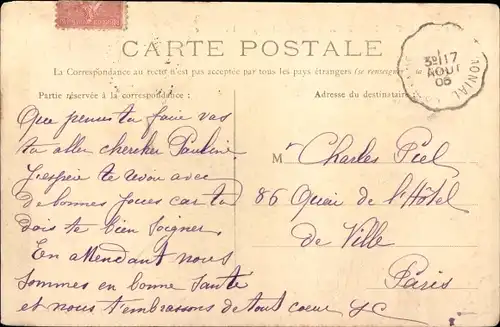 CARTE POSTALE
La Correspondance au recto n'est pas acceptée par tous les pays étrangers (se renseigner
Partie réservée à la correspondance :
Adresse du destinataire
3E 17
AOUT
05
MONIAL
Que penses tu faire vas
tu aller chercher Pauline
J'espère te voir avec
de bonnes joues car tu
dois te bien soigner
En attendant nous
sommes en bonne santé
et nous t'embrassons de tout coeur
Mr Charles Piel
86 Quai de l'Hôtel
de Ville
Paris